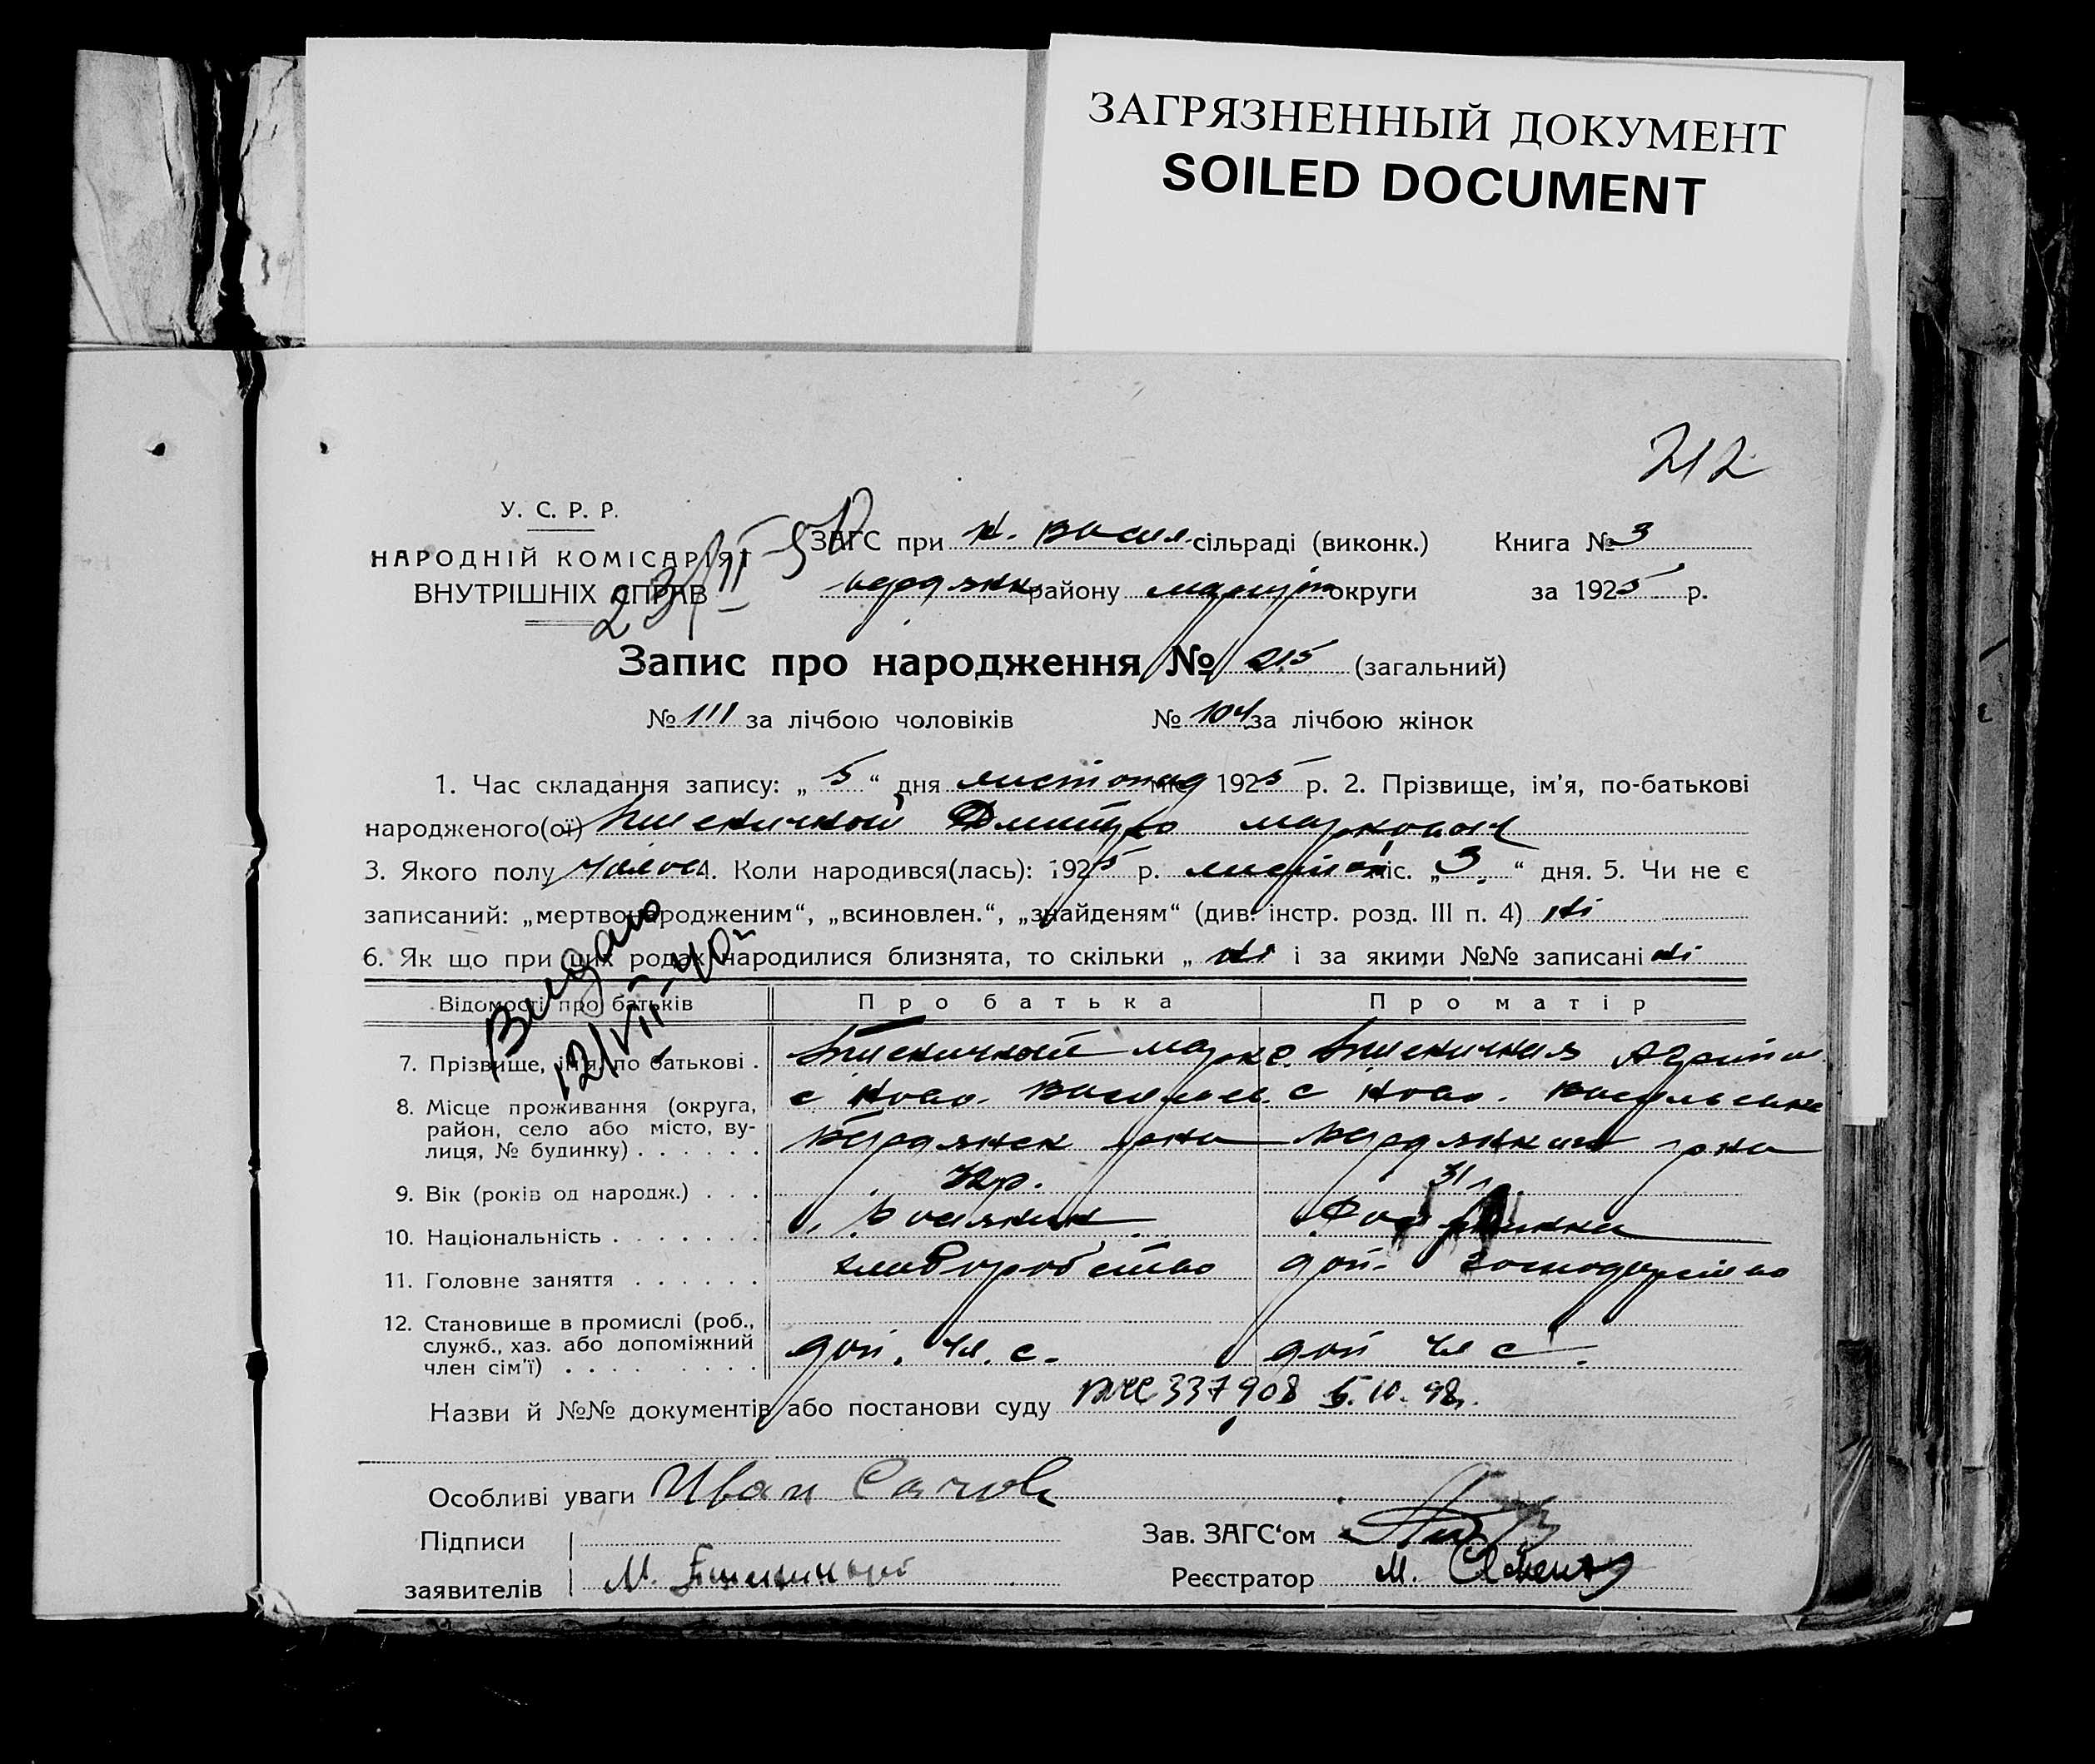 ЗАГРЯЗНЕННЫЙ ДОКУМЕНТ
SOILED DOCUMENT
212
У. С. Р. Р.
НАРОДНІЙ КОМІСАРІЯТ
ВНУТРІШНІХ СПРАВ
ЗАГС при Н. Васил. сільраді (виконк.) Книга № 3
Бердянк району маріуп округи за 1925 р.
Запис про народження № 215 (загальний)
№ 111 за лічбою чоловіків № 104 за лічбою жінок
1. Час складання запису: „ 5 “ дня листопад міс. 1925 р. 2. Прізвище, ім'я, по-батькові
народженого(ої) Дмитро маркович
3. Якого полу чолов 4. Коли народився(лась): 1925 р. листоп міс. „ 3 “ дня. 5. Чи не є
записаний: „мертвонародженим“, „всиновлен.“, „знайденям“ (див. інстр. розд. III п. 4) ні
6. Як що при цих родах народилися близнята, то скільки „ ні і за якими №№ записані ні
Видано
12/VII-40
Відомості про батьків Про батька Про матір
7. Прізвище, ім'я, по батькові . марко
8. Місце проживання (округа, район, село або місто, вулиця, № будинку) . . . . . .
с Ново. Васильев. с Ново. Васильевка
Бердянск рна Бердянкого рна
9. Вік (років од народж.) . . . 31
10. Національність . . . . . . .
11. Головне заняття . . . . . . хлиборобство доп. господарство
12. Становище в промислі (роб.,
служб., хаз. або допоміжний
член сім'ї) . . . . . . . . . доп. чл. с. доп чл с.
Назви й №№ документів або постанови суду 337908 5.10.98г.
Особливі уваги Иван
Підписи Зав. ЗАГС‘ом
заявителів М. Реєстратор М.